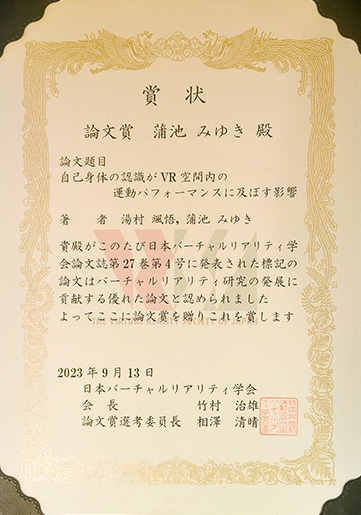 賞状
論文賞 蒲池 みゆき 殿
論文題目
自己身体の認識がVR空間内の
運動パフォーマンスに及ぼす影響
著者 湯村 颯悟, 蒲池 みゆき
貴殿がこのたび日本バーチャルリアリティ学
会論文誌第27巻第4号に発表された標記の
論文はバーチャルリアリティ研究の発展に
貢献する優れた論文と認められました
よってここに論文賞を贈りこれを賞します
THE VIRTUAL REALITY SOCIETY OF JAPAN
2023年9月13日
日本バーチャルリアリティ学会
会長 竹村 治雄
論文賞選考委員長 相澤 清晴